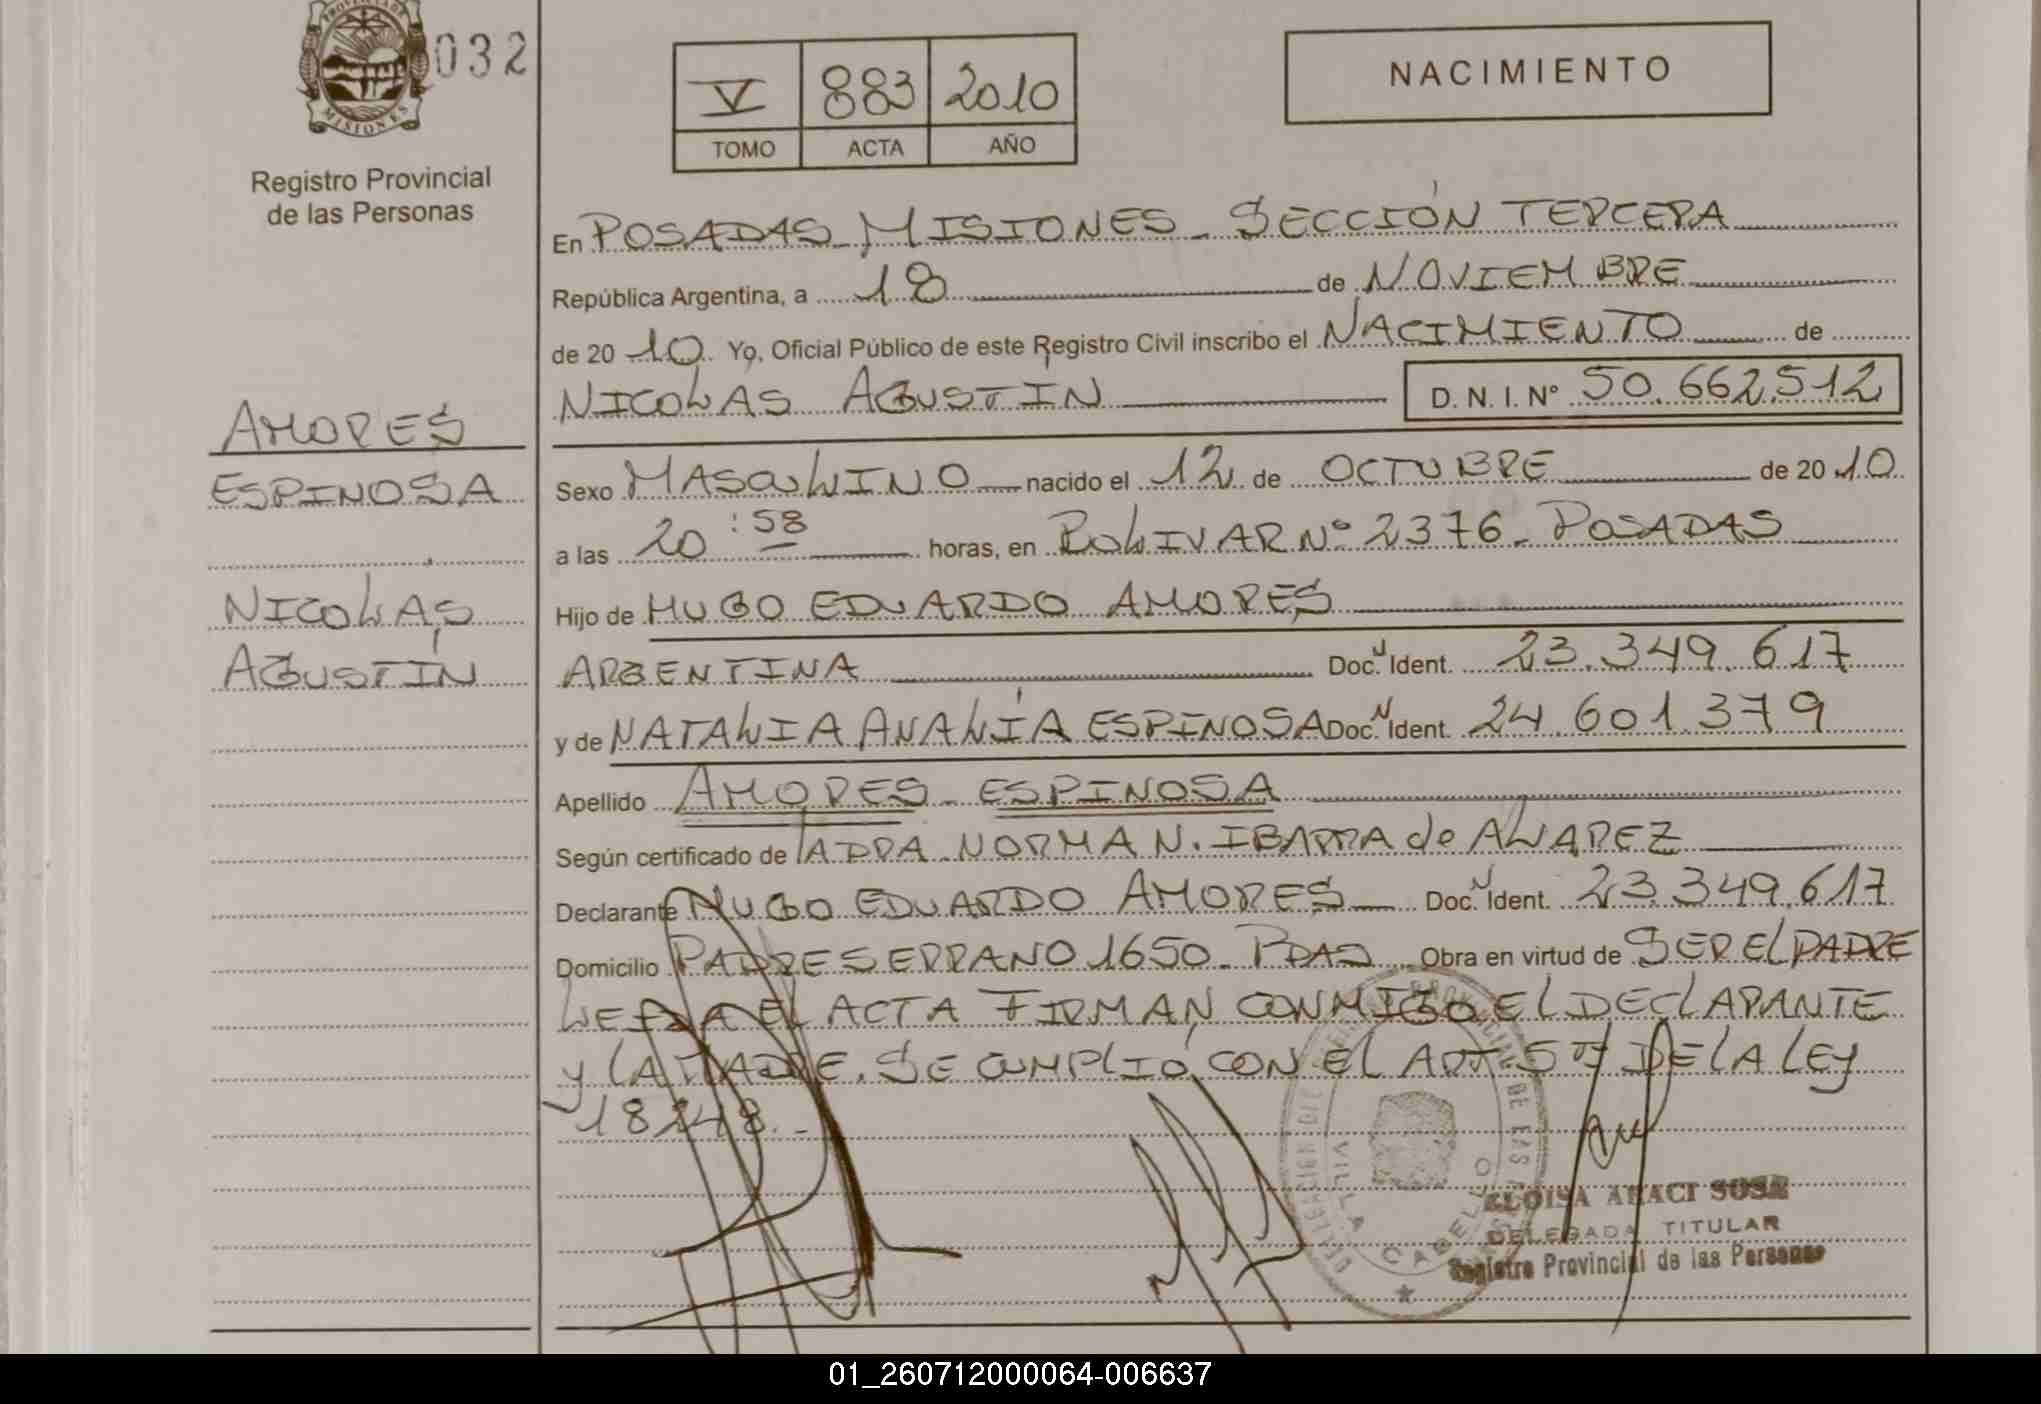 PROVINCIA DE
MISIONES
032
Registro Provincial
de las Personas
V 883 2010
TOMO ACTA AÑO
NACIMIENTO
En POSADAS - MISIONES - SECCIÓN TERCERA
República Argentina, a 18 de NOVIEMBRE
de 20 10 Yo, Oficial Público de este Registro Civil inscribo el NACIMIENTO de
NICOLÁS AGUSTÍN D. N. I. Nº 50.662.512
AMORES
ESPINOSA
NICOLÁS
AGUSTÍN
Sexo MASCULINO nacido el 12 de OCTUBRE de 20 10
a las 20:58 horas, en BOLIVAR Nº 2376 - POSADAS
Hijo de HUGO EDUARDO AMORES
ARGENTINA Doc. N Ident. 23.349.617
y de NATALIA ANALÍA ESPINOSA Doc. N Ident. 24.601.379
Apellido AMORES - ESPINOSA
Según certificado de LA DRA. NORMA N. IBARRA de ALVAREZ
Declarante HUGO EDUARDO AMORES Doc. N Ident. 23.349.617
Domicilio PADRE SERRANO 1650 - PDAS Obra en virtud de SER EL PADRE
LEIDA EL ACTA FIRMAN CONMIGO EL DECLARANTE
y LA MADRE. SE CUMPLIÓ CON EL ART. 5º DE LA LEY
18248.-
VILLA CABELLO
ELOISA ARACI SOSA
DELEGADA TITULAR
Registro Provincial de las Personas
01_260712000064-006637